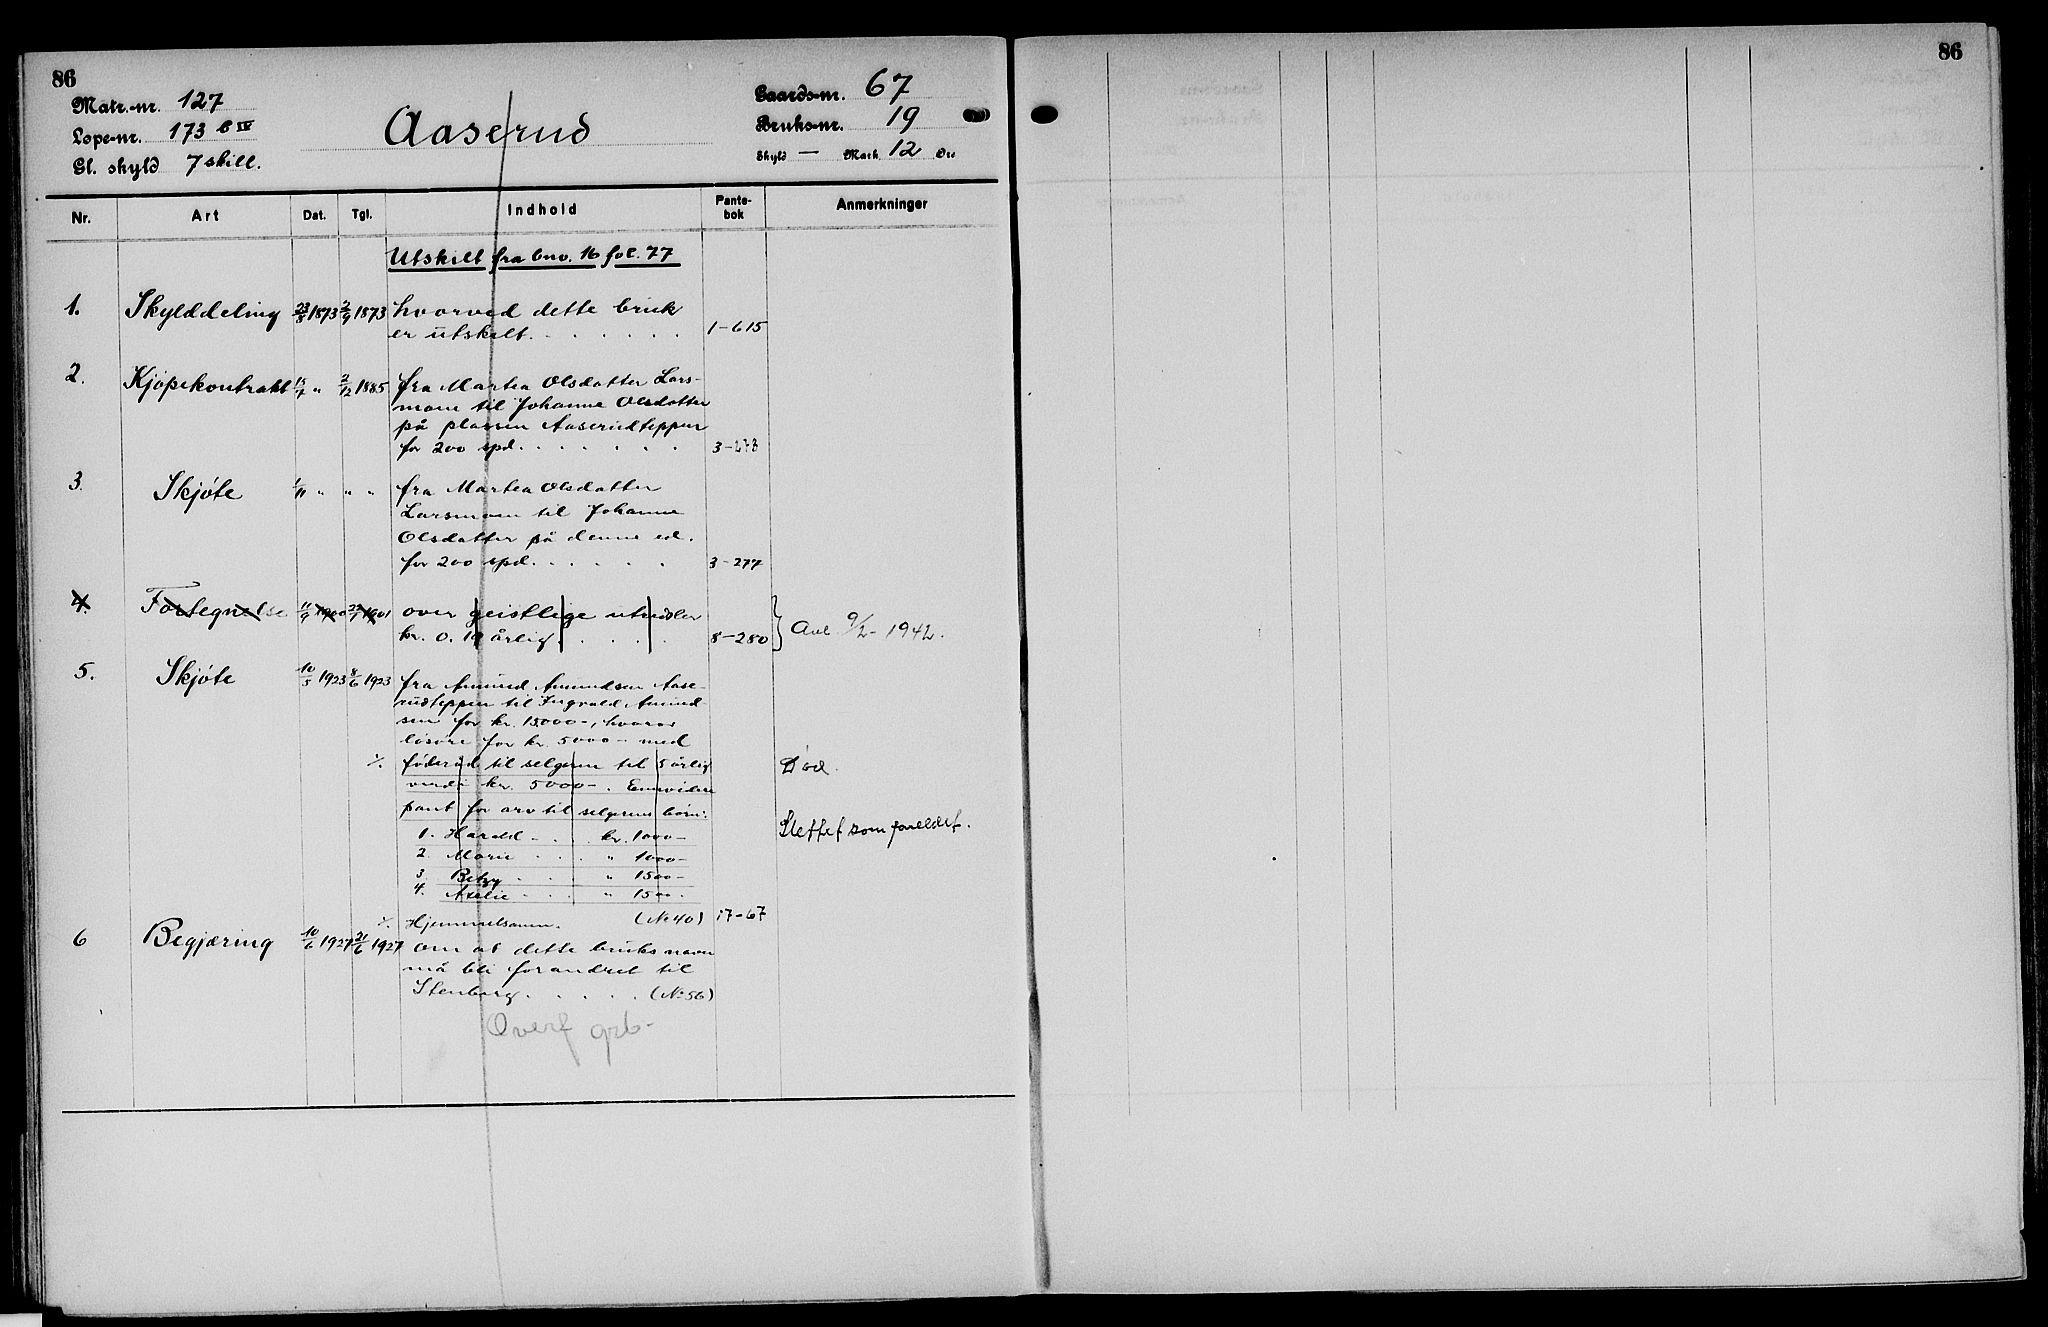 86
Matr.-nr. 127
Løpe-nr. 173 b IV
Gl. skyld 7 skill.
Aaserud
Gaards-nr. 67
Bruks-nr. 19
Skyld — Mark 12 Øre
Nr. Art Dat. Tgl. Indhold Pante-bok Anmerkninger
Utskilt fra bno. 16 fol. 77
1. Skylddeling 23/8 1873 2/9 1873 hvorved dette bruk
er utskilt. 1-615
2. Kjøpekontrakt 15/7 " 2/12 1885 fra Martea Olsdatter Lars-
moen til Johanne Olsdatter
på plassen Aaserudteppen
for 200 spd. 3-273
3. Skjøte 1/11 " " " fra Martea Olsdatter
Larsmoen til Johanne
Olsdatter på denne ed.
for 200 spd. 3-277
4. Fortegnelse 11/9 1900 22/7 1901 over geistlige utredsler
kr. 0.19 årlig. 8-280 Avl. 9/2-1942.
5. Skjøte 10/5 1923 8/6 1923 fra Amund Amundsen Aase-
rudteppen til Ingvald Amund-
sen for kr. 15000-, hvorav
løsøre for kr. 5000- med
%. føderåd til selgeren til 5 årlig Død.
verdi kr. 5000-. Enn videre
pant for arv til selgerens børn:
1. Harald kr. 1000- Slettet som foreldet.
2. Marie " 1000-
3. Betzy " 1500-
4. " 1500-
%. Hjemmelsanm. (No 40) 17-67
6 Begjæring 10/6 1927 21/6 1927 om at dette bruks navn
må bli forandret til
Stenborg. (No 56)
Overf grb-
86